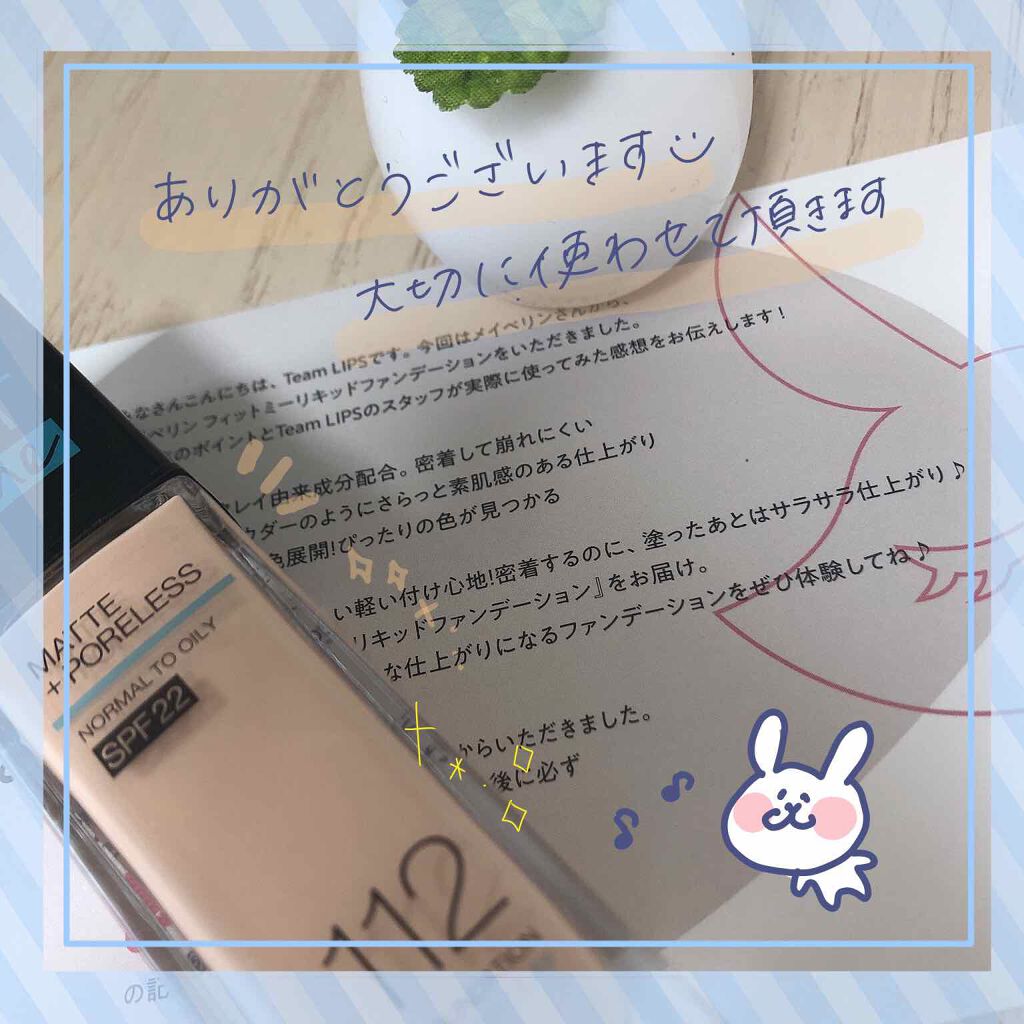 ありがとうございます
大切に使わせて頂きます
なさんこんにちは、Team LIPSです。今回はメイベリンさんから、
ベリン フィットミーリキッドファンデーションをいただきました。
のポイントとTeam LIPSのスタッフが実際に使ってみた感想をお伝えします!
レイ由来成分配合。密着して崩れにくい
ウダーのようにさらっと素肌感のある仕上がり
色展開!ぴったりの色が見つかる
い軽い付け心地!密着するのに、塗ったあとはサラサラ仕上がり♪
リキッドファンデーション』をお届け。
な仕上がりになるファンデーションをぜひ体験してね♪
からいただきました。
後に必ず
MATTE
+PORELESS
NORMAL TO OILY
SPF 22
112
の記